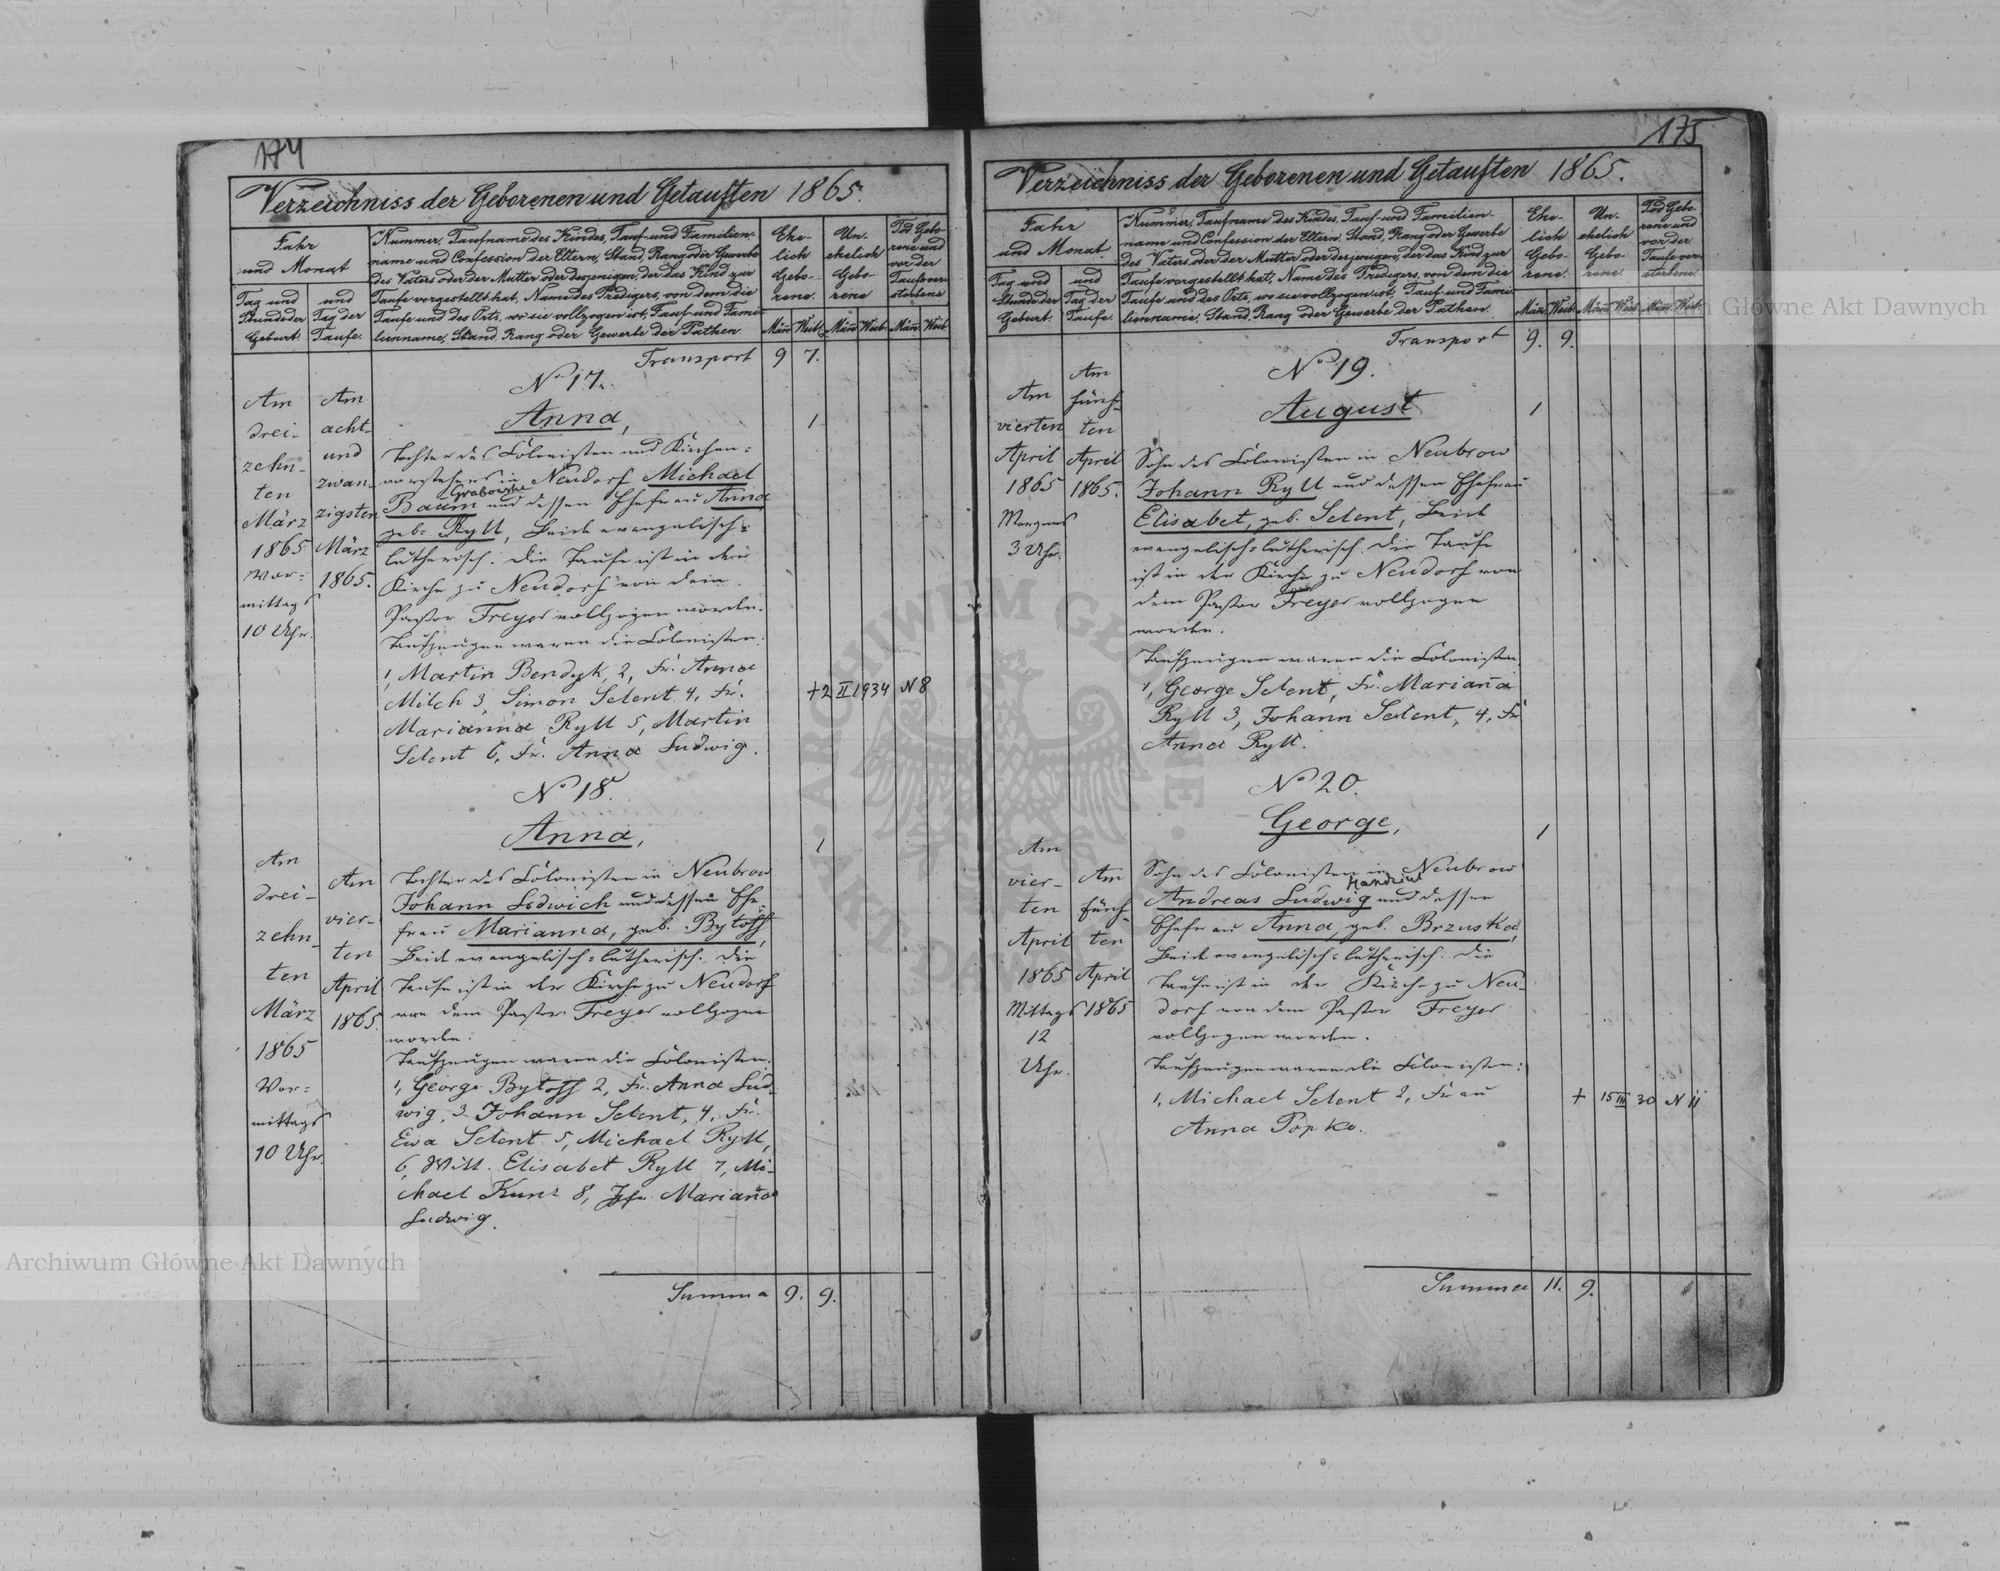 174
Verzeichniss der Geborenen und Getauften 1865.
Jahr
und Monat
Tag und
Stunde der
Geburt.
und
Tag der
Taufe.
Nummer, Taufname des Kindes, Tauf- und Familien-
name und Confession der Eltern, Stand, Rang oder Gewerbe
des Vaters oder der Mutter oder desjenigen, der das Kind zur
Taufe vorgestellt hat, Name des Predigers, von dem die
Taufe und des Orts, wo sie vollzogen ist, Tauf und Fami-
lienname, Stand, Rang oder Gewerbe der Pathen.
Ehe-
lich
Gebo-
rene.
Un-
ehelich
Gebo-
rene
Tod Gebo-
rene und
vor der
Taufe ver-
storbene
Män. Weib. Män. Weib. Män. Weib.
Transport 9 7.
Am
drei-
zehn-
ten
März
1865
Vor-
mittags
10 Uhr.
Am
acht-
und
zwan-
zigsten
März
1865.
No 17.
Anna,
1
Tochter des Colonisten und Kirchen-
vorstehers in Neudorf Michael
Grabowske
Baum und dessen Ehefrau Anna
geb. Ryll, Beide evangelisch-
lutherisch. Die Taufe ist in der
Kirche zu Neudorf von dem
Pastor Freyer vollzogen worden.
Taufzeugen waren die Colonisten:
1, Martin Bendyk, 2, Fr. Anna
Milch 3, Simon Selent 4, Fr.
Marianna Ryll 5, Martin
Selent 6, Fr. Anna Ludwig.
+ 2 II 1934 N 8
No 18.
Anna,
1
Am
drei-
zehn-
ten
März
1865
Vor-
mittags
10 Uhr.
Am
vier-
ten
April
1865.
Tochter des Colonisten in Neubrow
Johann Lodwich und dessen Ehe-
frau Marianna, geb. Bytoff,
Beide evangelisch-lutherisch. Die
Taufe ist in der Kirche zu Neudorf
von dem Pastor Freyer vollzogen
worden.
Taufzeugen waren die Colonisten:
1, George Bytoff 2, Fr. Anna Lud-
wig, 3. Johann Selent, 4, Fr.
Ewa Selent 5, Michael Ryll,
6, Witt. Elisabet Ryll 7, Mi-
chael Kunz 8, Jgfr. Marianna
Ludwig.
Summa 9. 9.
175
Verzeichniss der Geborenen und Getauften 1865.
Jahr
und Monat
Tag und
Stunde der
Geburt.
und
Tag der
Taufe.
Nummer, Taufname des Kindes, Tauf- und Familien-
name und Confession der Eltern, Stand, Rang oder Gewerbe
des Vaters oder der Mutter oder desjenigen, der das Kind zur
Taufe vorgestellt hat, Name des Predigers, von dem die
Taufe und des Orts, wo sie vollzogen ist, Tauf und Fami-
lienname, Stand, Rang oder Gewerbe der Pathen.
Ehe-
lich
Gebo-
rene.
Un-
ehelich
Gebo-
rene
Tod Gebo-
rene und
vor der
Taufe ver-
storbene
Män. Weib. Män. Weib. Män. Weib.
Transport 9. 9.
Am
vierten
April
1865
Morgens
3 Uhr.
Am
fünf-
ten
April
1865.
No 19.
August
1
Sohn des Colonisten in Neubrow
Johann Ryll und dessen Ehefrau
Elisabet, geb. Selent, Beide
evangelisch-lutherisch. Die Taufe
ist in der Kirche zu Neudorf von
dem Pastor Freyer vollzogen
worden.
Taufzeugen waren die Colonisten
1, George Selent, Fr. Marianna
Ryll 3, Johann Selent, 4, Fr
Anna Ryll.
No 20.
George,
1
Am
vier-
ten
April
1865
Mittags
12
Uhr.
Am
fünf-
ten
April
1865
Sohn des Colonisten in Neubrow
Andreas Ludwig und dessen
Ehefrau Anna, geb. Brzuska,
Beide evangelisch-lutherisch. Die
Taufe ist in der Kirche zu Neu-
dorf von dem Pastor Freyer
vollzogen worden.
Taufzeugen waren die Colonisten:
1, Michael Selent 2, Frau
Anna Popko.
+ 15 III 30 N 11
Summa 11. 9.
Archiwum Główne Akt Dawnych
m Główne Akt Dawnych
ARCHIWUM GŁÓWNE AKT DAWNYCH